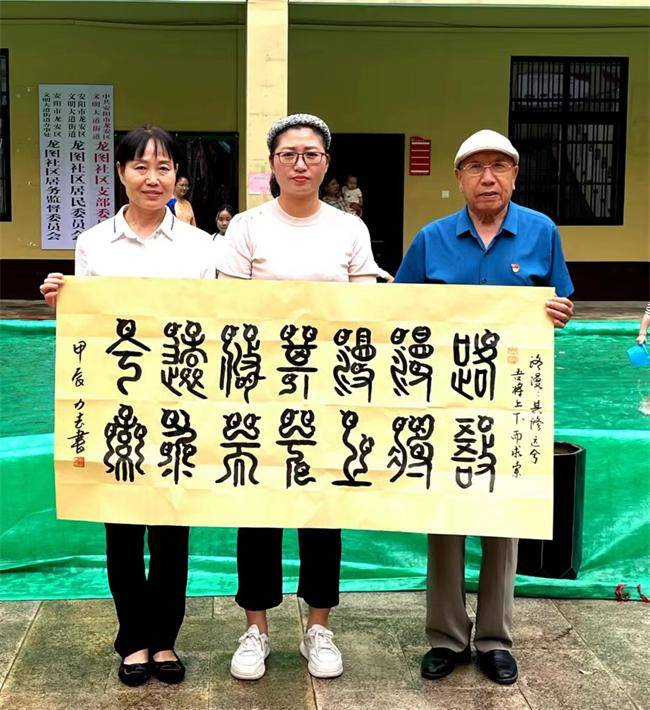 中共安阳市龙安区
文明大道街道
龙图社区支部委
安阳市龙安区
文明大道街道
龙图社区居民委员会
安阳市龙安区
文明大道街道办事处
龙图社区居务监督委员会
路漫:其修远兮
吾将上下而求索
路漫漫其修遠兮
吾將上下而求索
甲辰
書